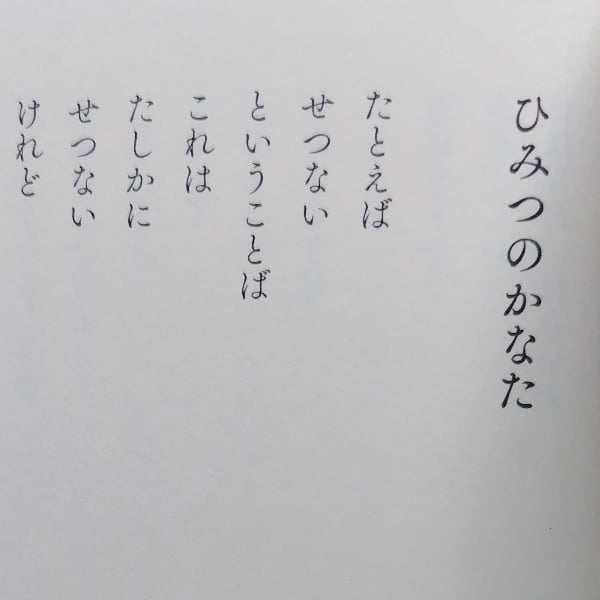 ひみつのかなた
たとえば
せつない
ということば
これは
たしかに
せつない
けれど